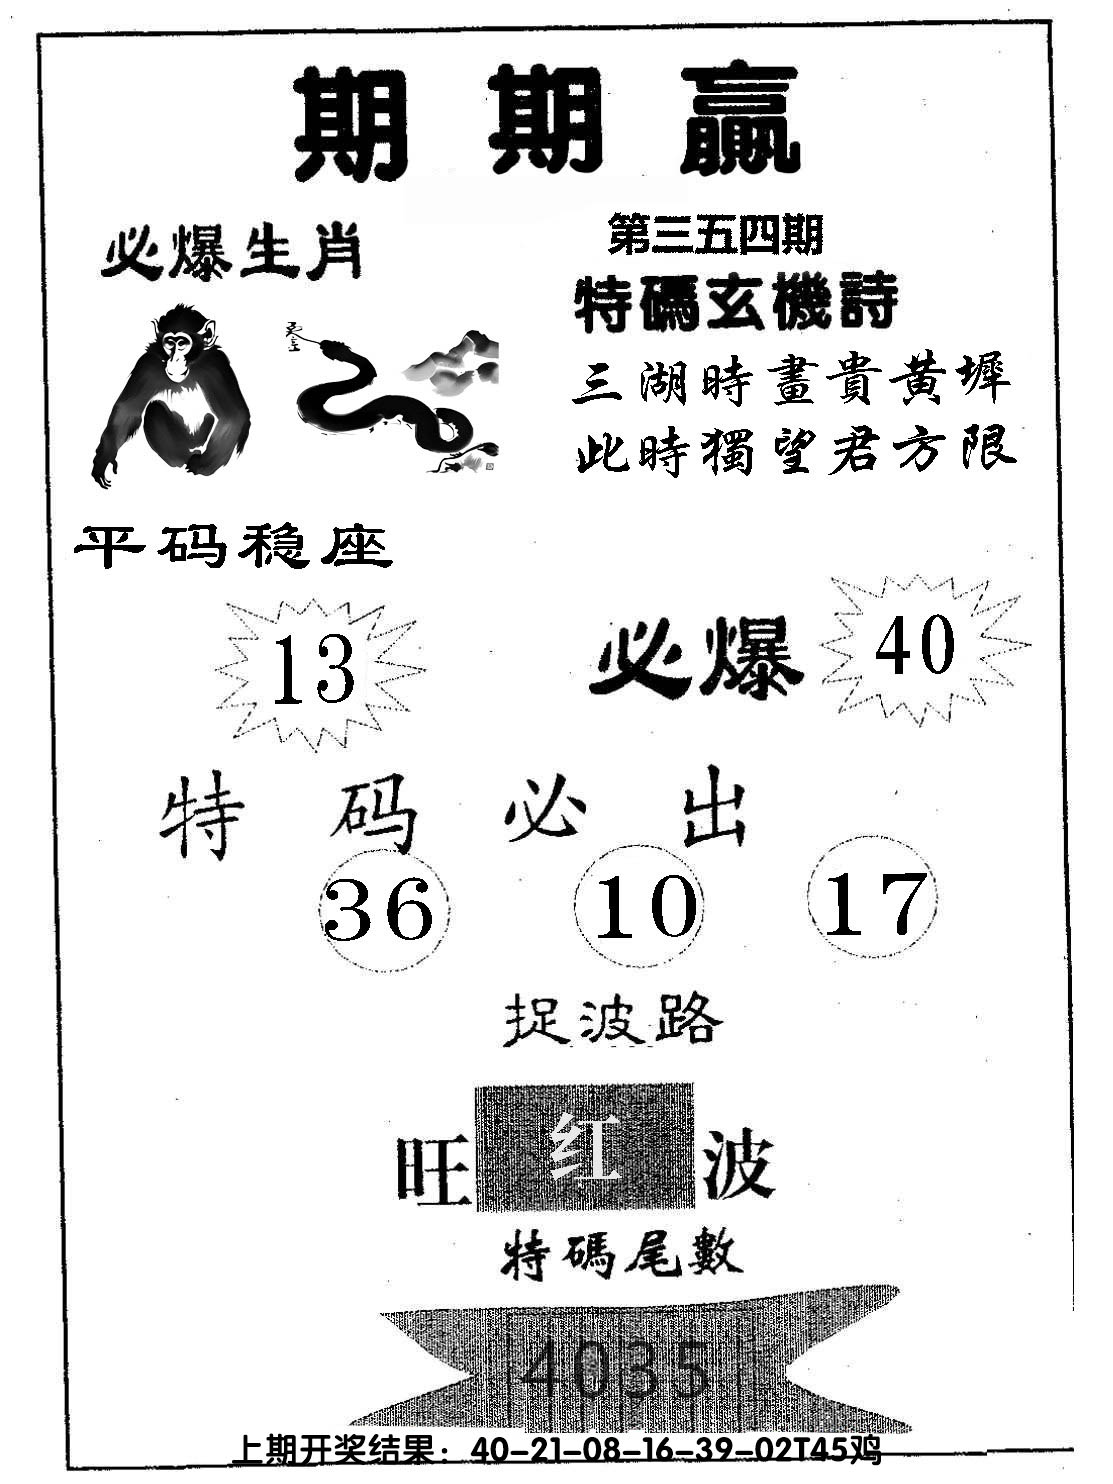 期期贏
第三五四期
必爆生肖
特碼玄機詩
三湖時畫貴黄墀
此時獨望君方限
平码稳座
13
必爆
40
特码必出
36 10 17
捉波路
旺红波
特碼尾數
4035
上期开奖结果：40-21-08-16-39-02T45鸡